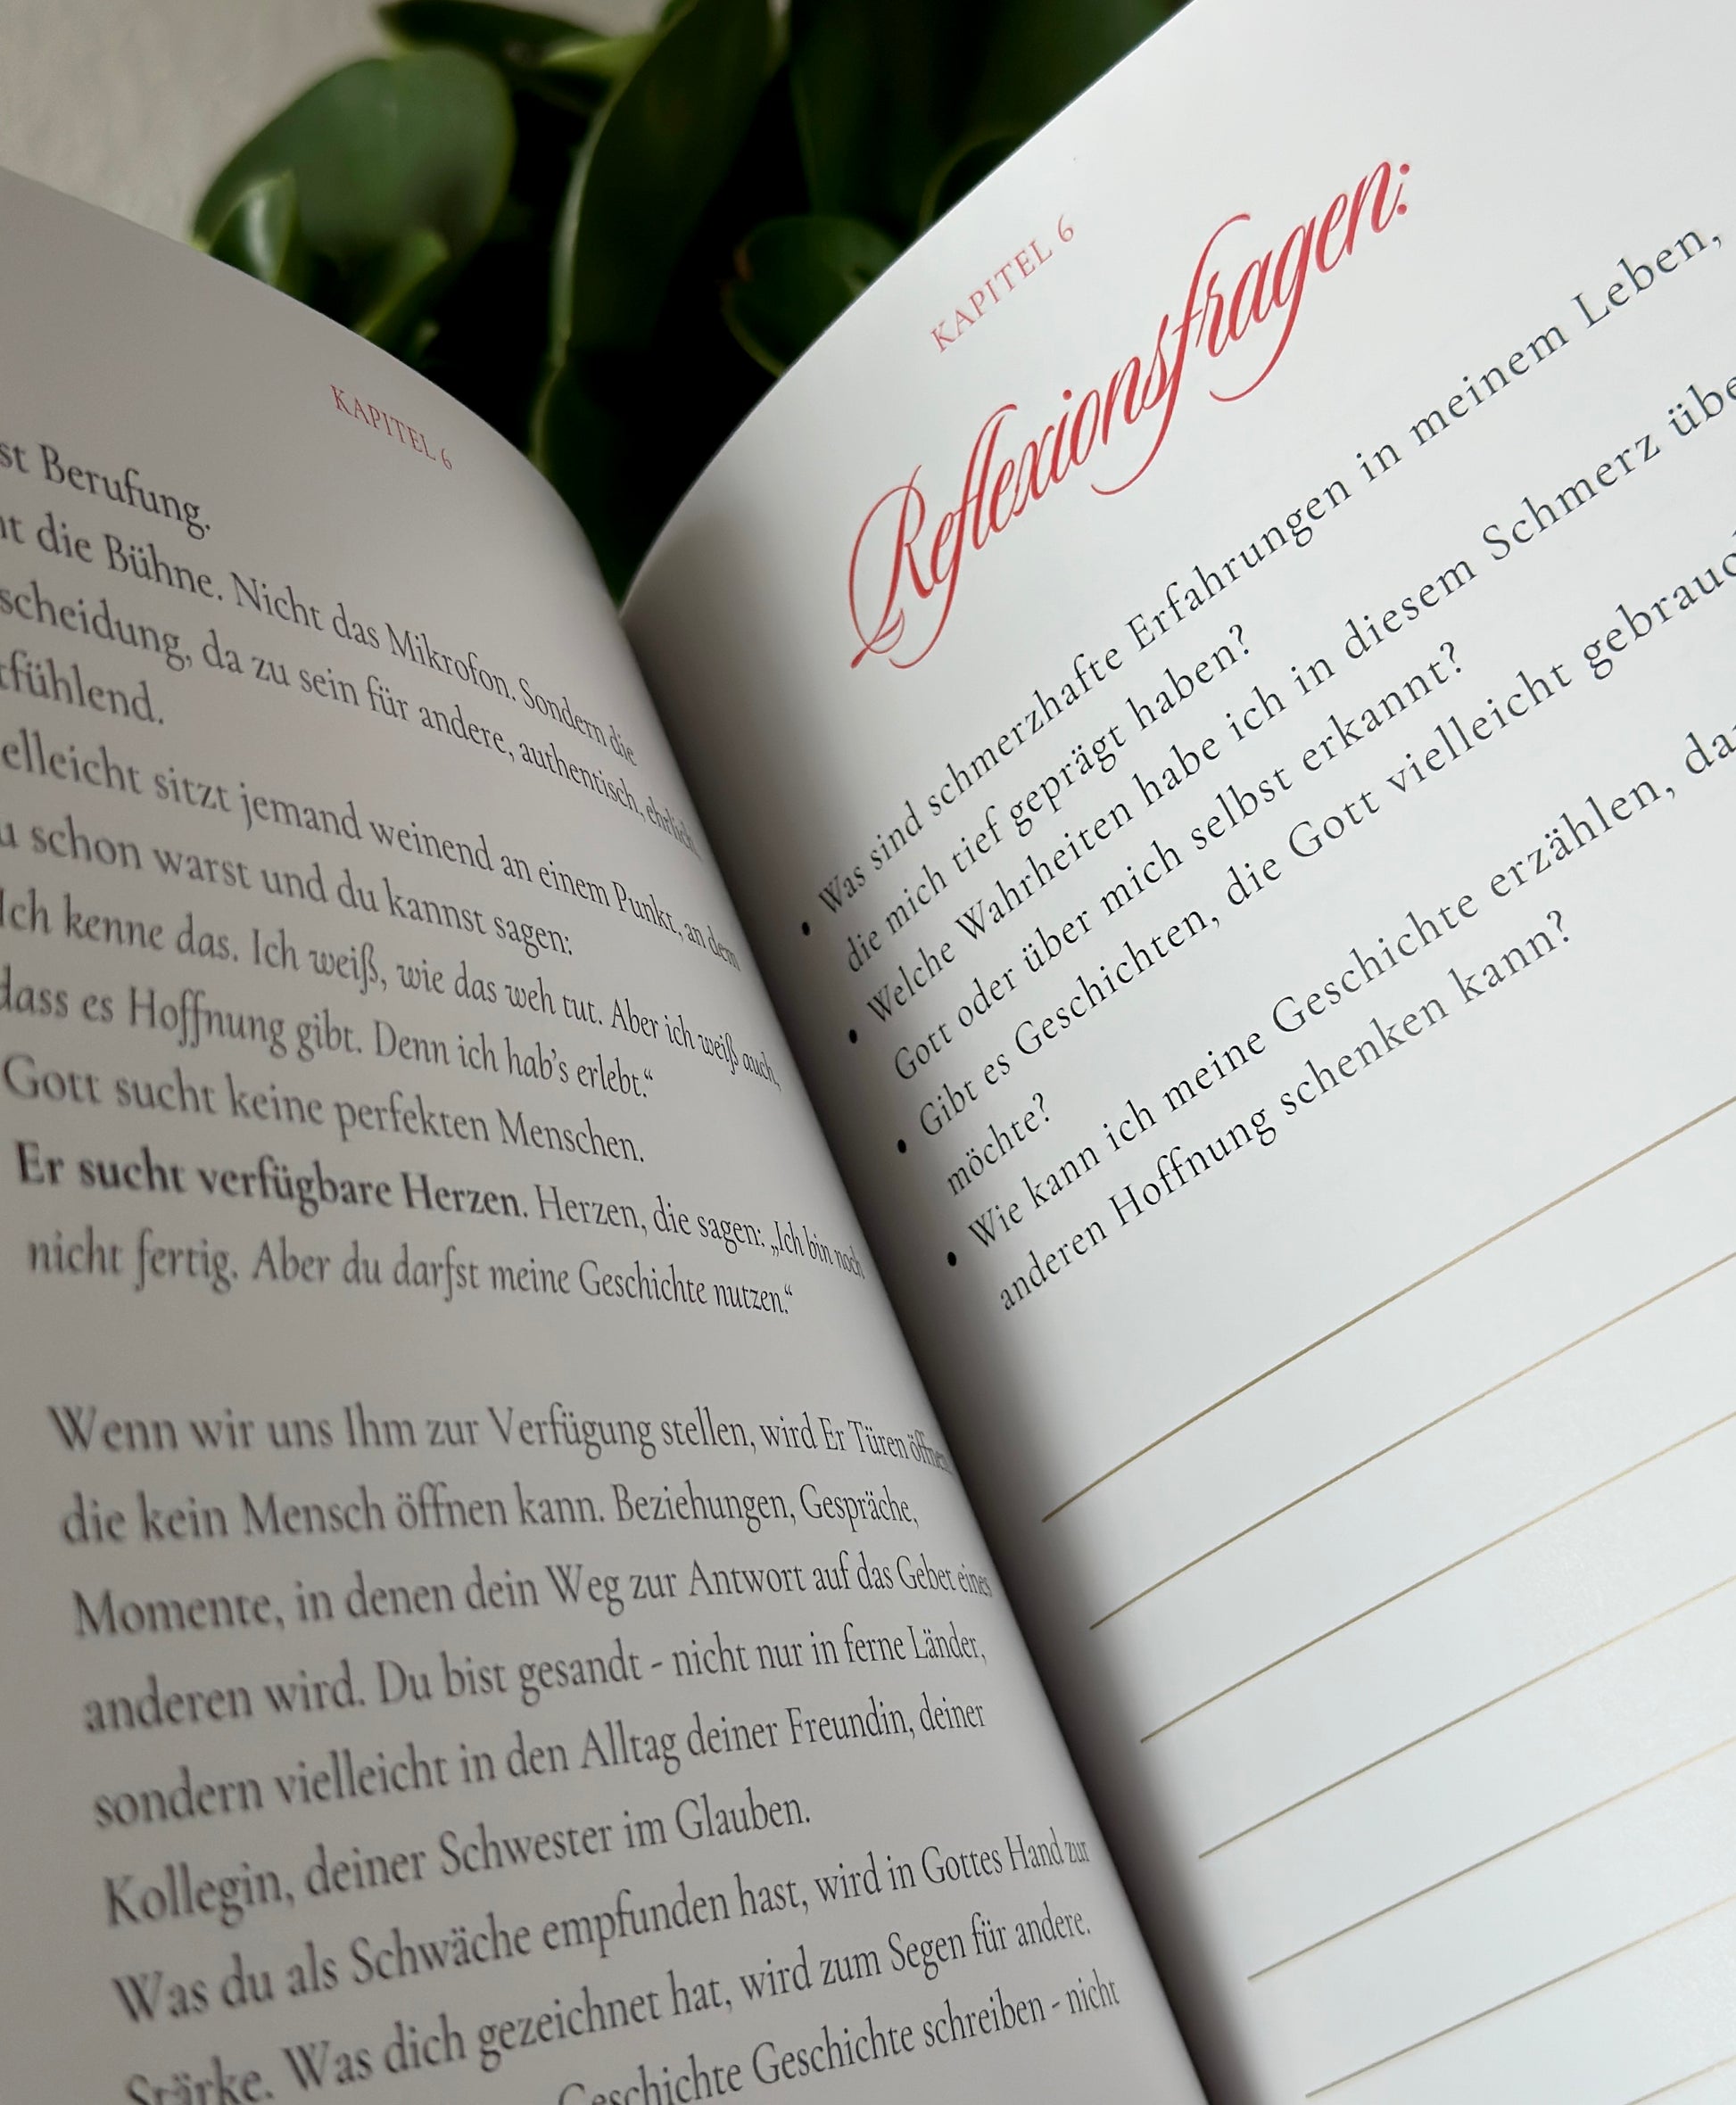 KAPITEL 6
st Berufung.
t die Bühne. Nicht das Mikrofon. Sondern die
scheidung, da zu sein für andere, authentisch, ehrlich,
tfühlend.
elleicht sitzt jemand weinend an einem Punkt, an dem
u schon warst und du kannst sagen:
Ich kenne das. Ich weiß, wie das weh tut. Aber ich weiß auch,
dass es Hoffnung gibt. Denn ich hab’s erlebt.“
Gott sucht keine perfekten Menschen.
Er sucht verfügbare Herzen. Herzen, die sagen: „Ich bin noch
nicht fertig. Aber du darfst meine Geschichte nutzen.“
Wenn wir uns Ihm zur Verfügung stellen, wird Er Türen öffnen
die kein Mensch öffnen kann. Beziehungen, Gespräche,
Momente, in denen dein Weg zur Antwort auf das Gebet eines
anderen wird. Du bist gesandt - nicht nur in ferne Länder,
sondern vielleicht in den Alltag deiner Freundin, deiner
Kollegin, deiner Schwester im Glauben.
Was du als Schwäche empfunden hast, wird in Gottes Hand zur
Stärke. Was dich gezeichnet hat, wird zum Segen für andere.
Geschichte Geschichte schreiben - nicht
KAPITEL 6
Reflexionsfragen:
• Was sind schmerzhafte Erfahrungen in meinem Leben,
die mich tief geprägt haben?
• Welche Wahrheiten habe ich in diesem Schmerz übe
Gott oder über mich selbst erkannt?
• Gibt es Geschichten, die Gott vielleicht gebrauc
möchte?
• Wie kann ich meine Geschichte erzählen, da
anderen Hoffnung schenken kann?